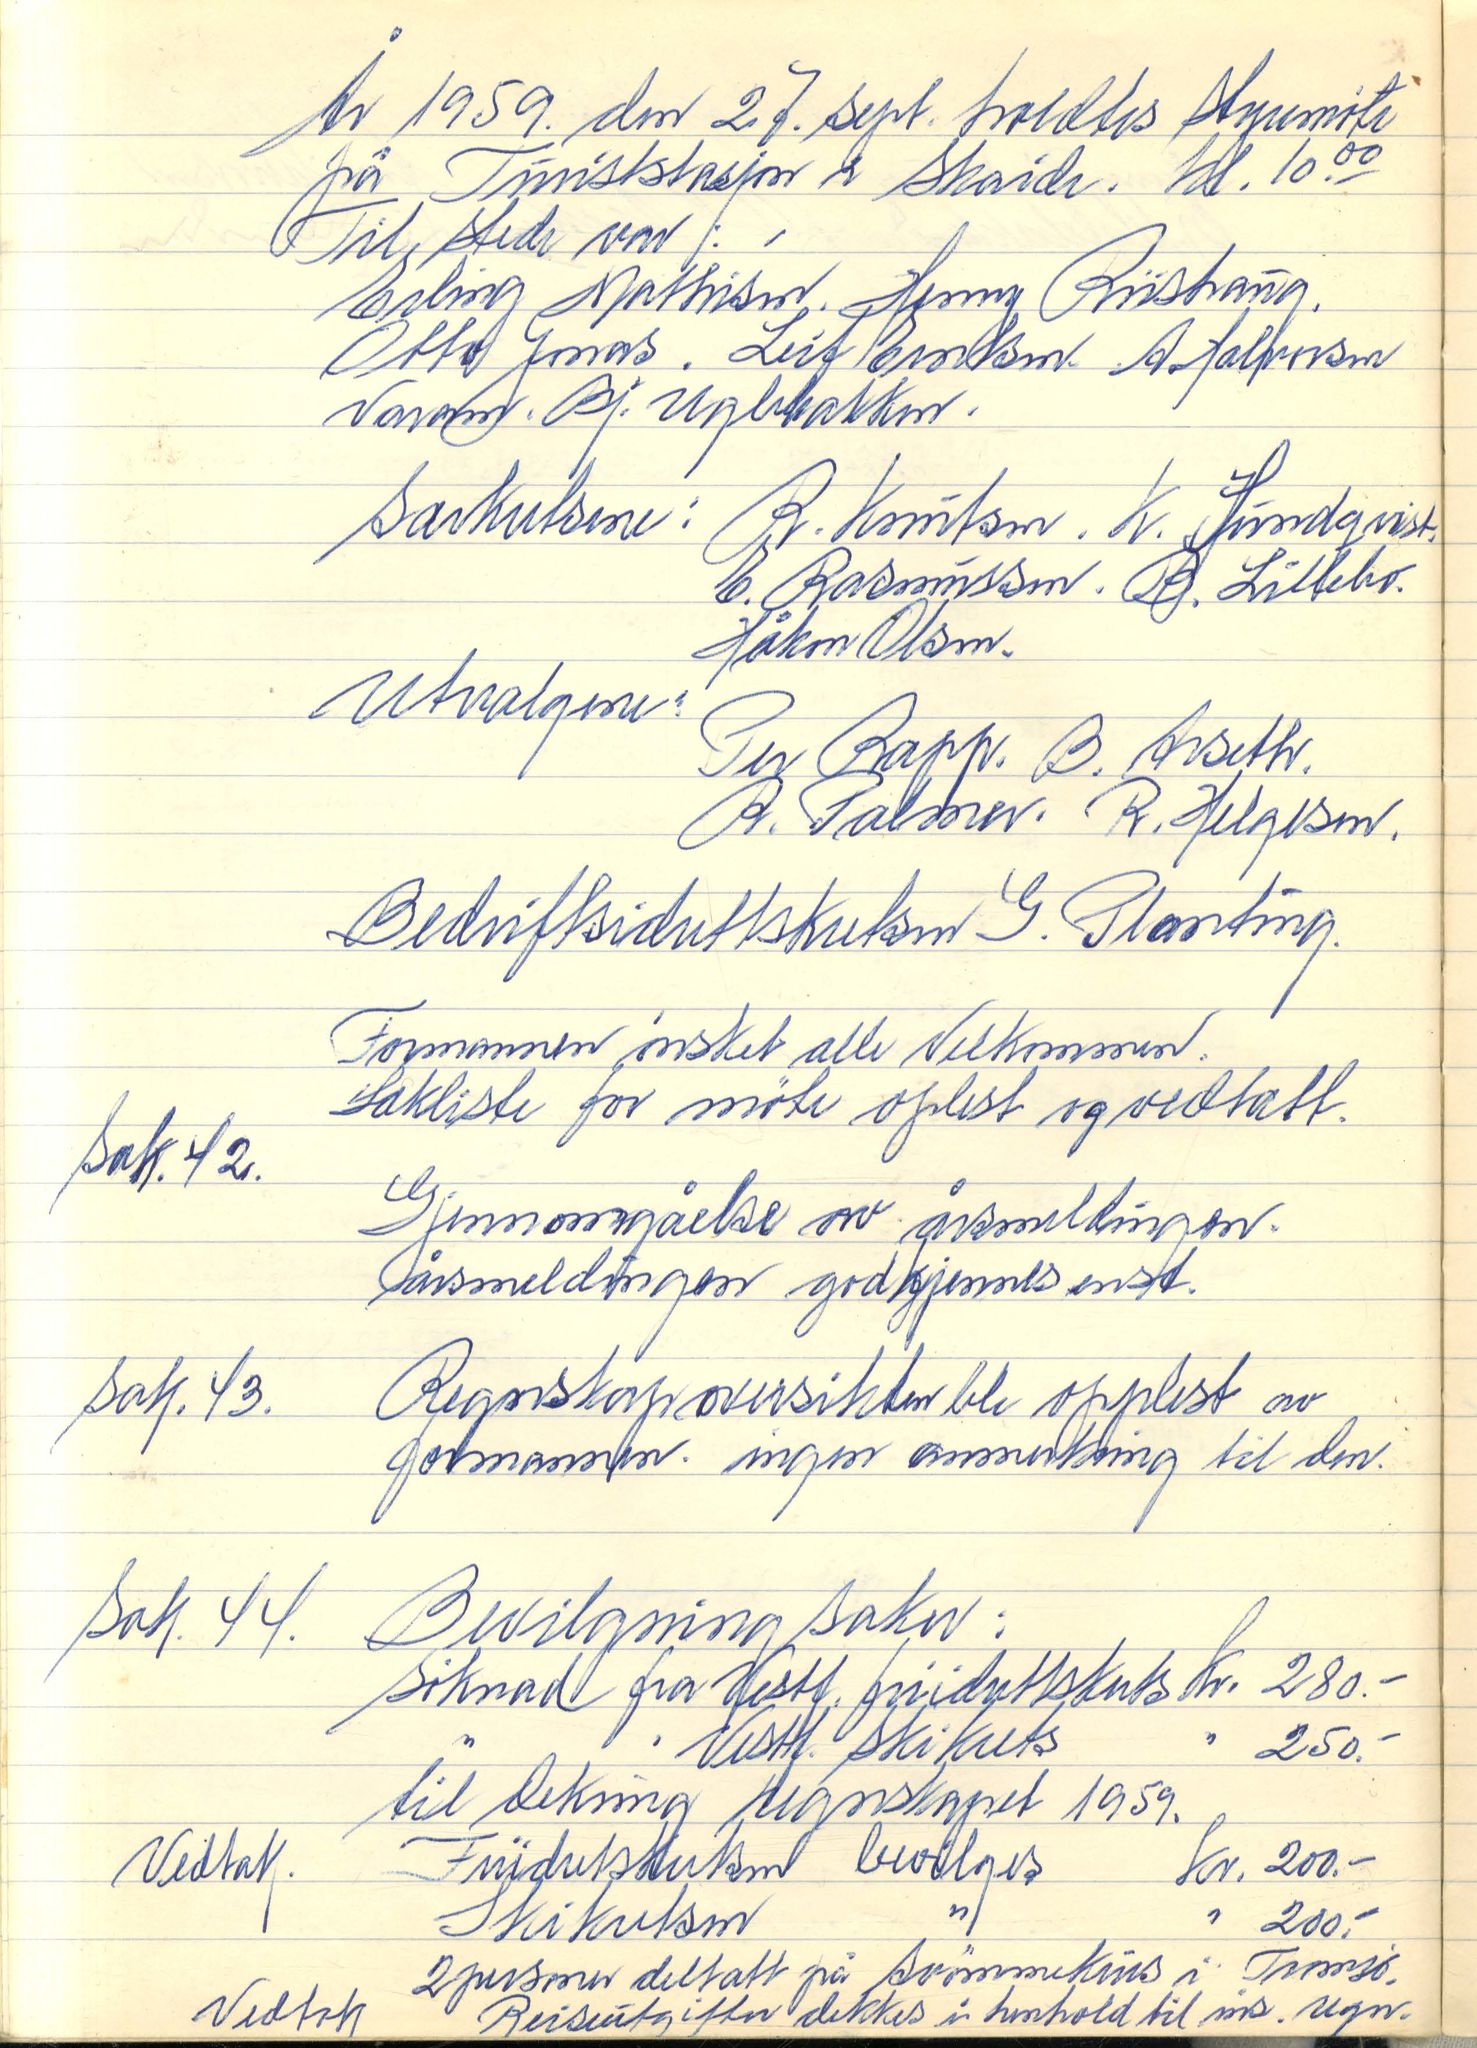 År 1959. den 27. sept. holdtes styremöte
på Turiststasjon i Skaidi. kl. 10.00
Til stede var:
Erling Mathisen. Henny Riishaug.
Otto Jonas. Leif Eriksen. A. Halvorsen
Varam. Bj. Uglebakken.
Særkretsene: R. Knutsen. K. Hundqvist.
E. Rasmussen. B. Lillebo.
Håkon Olsen.
Utvalgene:
Per Rapp. B. Arseth.
R. Palmer. R. Helgesen.
Bedriftsidrettskretsen G. Planting.
Formannen önsket alle Velkommen.
Sakliste for möte oplest og vedtatt.
Sak. 42.
Gjennomgåelse av årsmeldingen.
årsmeldingen godkjennes enst.
Sak. 43. Regnskapsoversikten ble opplest av
formannen. ingen anmerkning til den.
Sak. 44. Bevilgning saker:
Söknad fra Vestf. friidrettskrets kr. 280.-
" " Vestf. Skikrets " 250.-
til dekning regnskapet 1959.
Vedtak. Friidretskretsen bevilges kr. 200.-
Skikretsen " " 200.-
2 personer deltatt på Svömmekurs i Tromsö.
Vedtak Reiseutgifter dekkes i henhold til inns. regn.